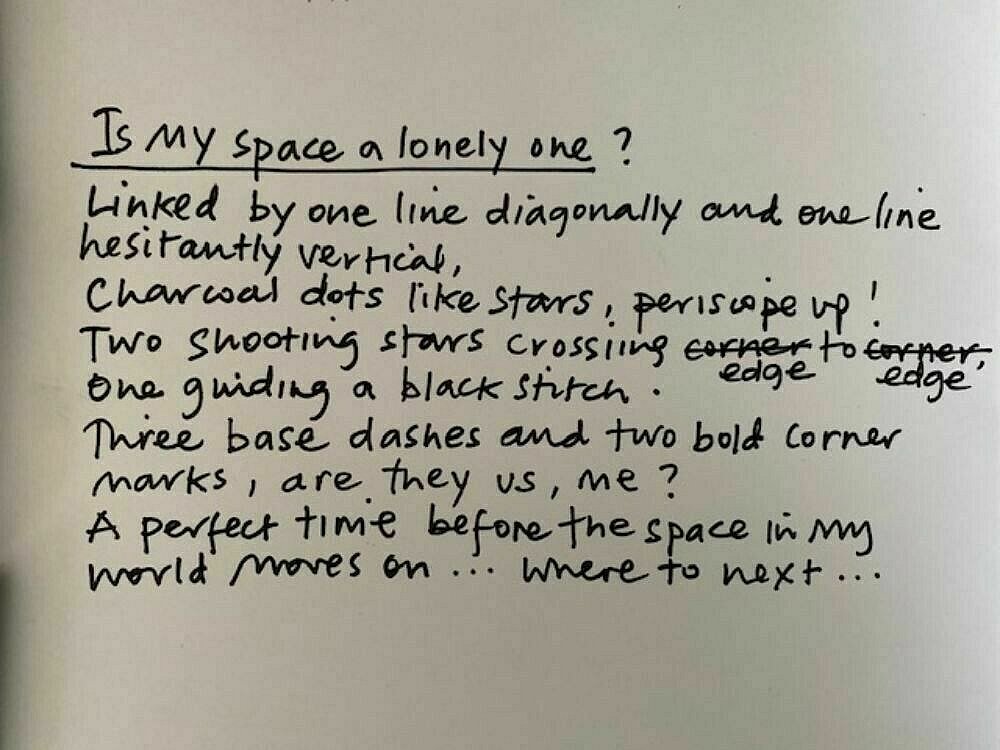 Is my space a lonely one?
Linked by one line diagonally and one line
hesitantly vertical,
Charcoal dots like stars, periscope up!
Two shooting stars crossiing corner to corner,
edge edge
One guiding a black stitch.
Three base dashes and two bold corner
marks, are they us, me?
A perfect time before the space in my
world moves on... where to next...